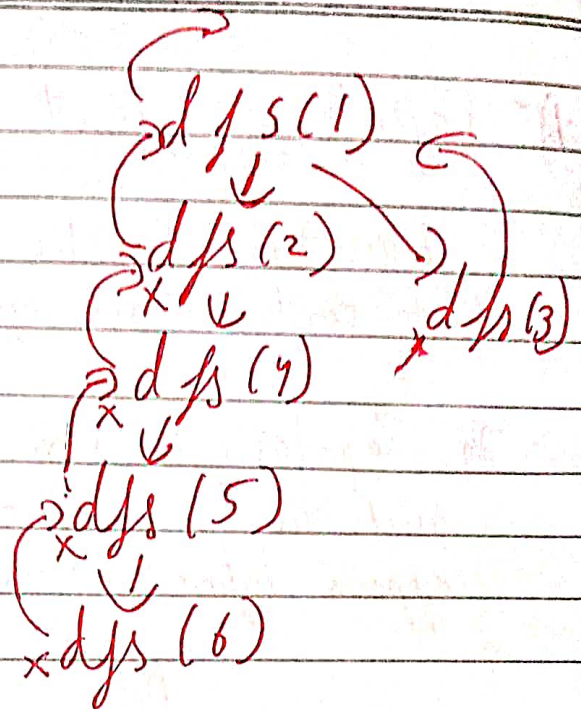 dfs(1)
dfs(2)
dfs(3)
dfs(4)
dfs(5)
dfs(6)